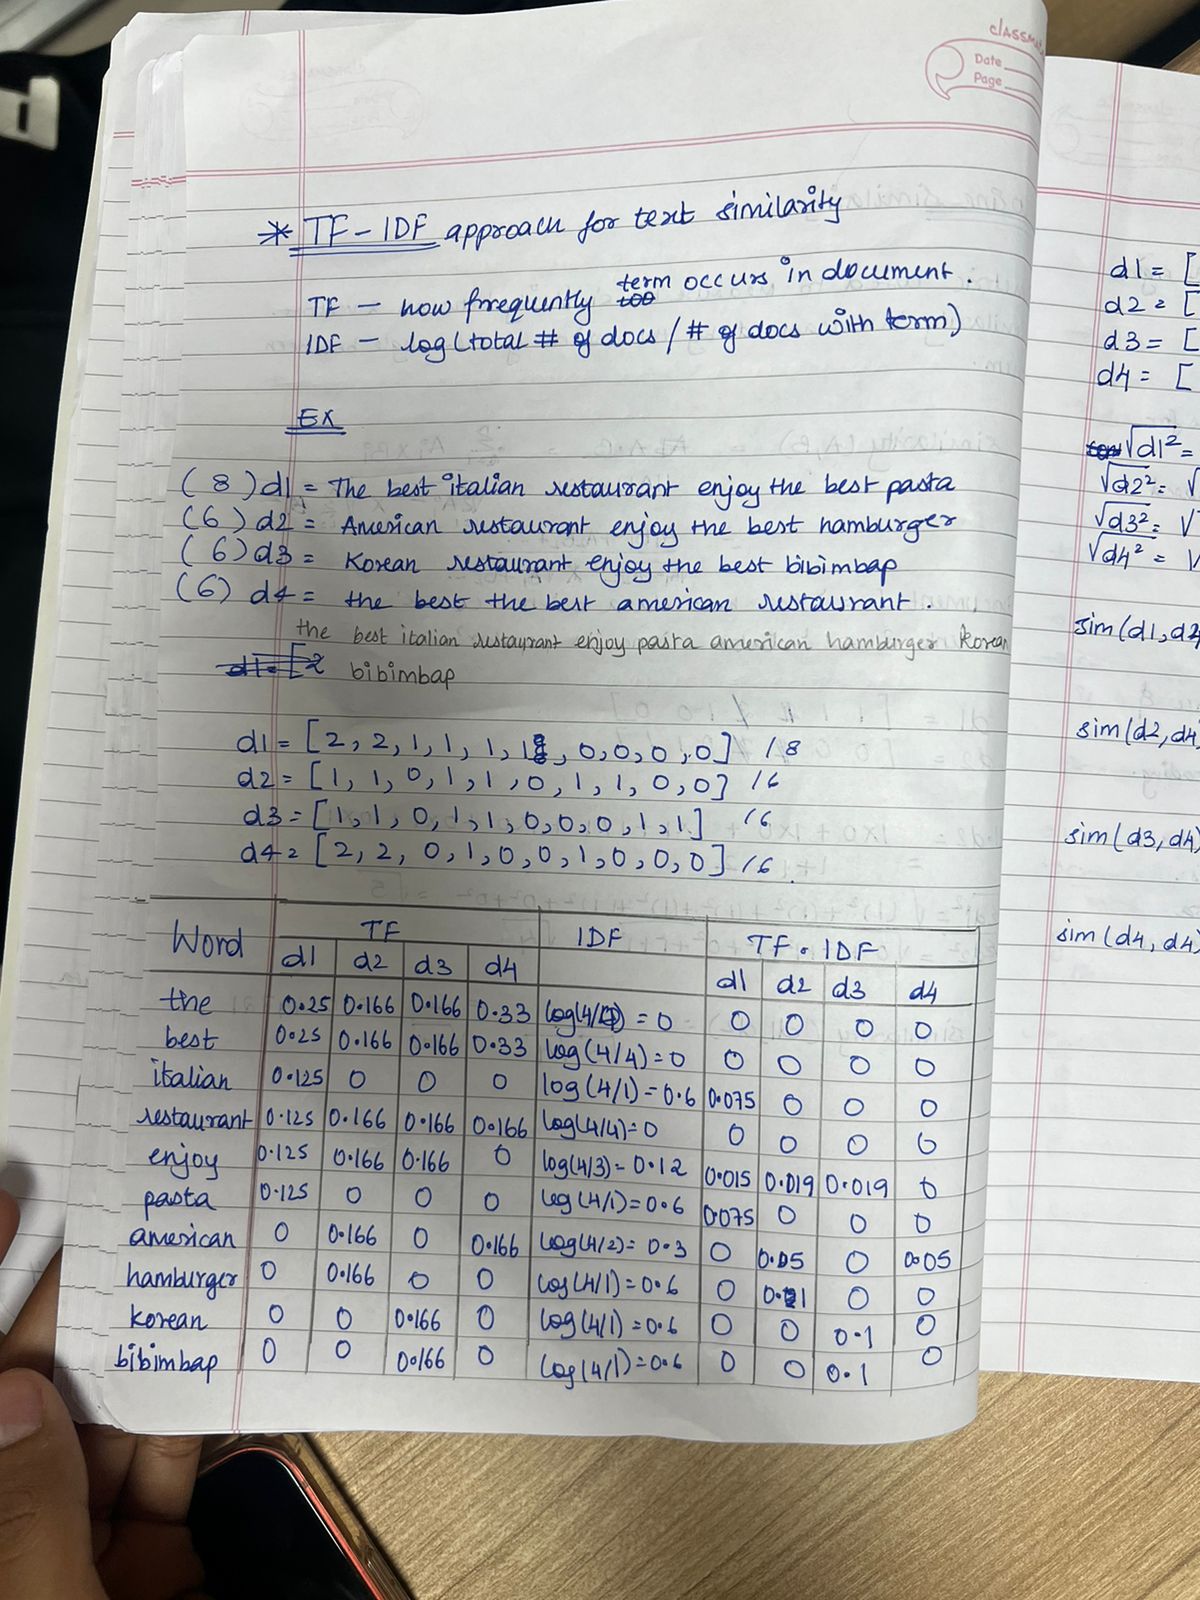 classm
Date
Page
* TF - IDF approach for text similarity
TF - how frequently term occurs in document.
IDF - log (total # of docs / # of docs with term)
EX
(8) d1 = The best italian restaurant enjoy the best pasta
(6) d2 = American restaurant enjoy the best hamburger
(6) d3 = Korean restaurant enjoy the best bibimbap
(6) d4 = the best the best american restaurant.
the best italian restaurant enjoy pasta american hamburger korean
bibimbap
d1 = [2, 2, 1, 1, 1, 1, 0, 0, 0, 0] /8
d2 = [1, 1, 0, 1, 1, 0, 1, 1, 0, 0] /6
d3 = [1, 1, 0, 1, 1, 0, 0, 0, 1, 1] /6
d4 = [2, 2, 0, 1, 0, 0, 1, 0, 0, 0] /6
Word TF IDF TF . IDF
d1 d2 d3 d4 d1 d2 d3 d4
the 0.25 0.166 0.166 0.33 log(4/4) = 0 0 0 0 0
best 0.25 0.166 0.166 0.33 log(4/4) = 0 0 0 0 0
italian 0.125 0 0 0 log(4/1) = 0.6 0.075 0 0 0
restaurant 0.125 0.166 0.166 0.166 log(4/4) = 0 0 0 0 0
enjoy 0.125 0.166 0.166 0 log(4/3) = 0.12 0.015 0.019 0.019 0
pasta 0.125 0 0 0 log(4/1) = 0.6 0.075 0 0 0
american 0 0.166 0 0.166 log(4/2) = 0.3 0 0.05 0 0.05
hamburger 0 0.166 0 0 log(4/1) = 0.6 0 0.1 0 0
korean 0 0 0.166 0 log(4/1) = 0.6 0 0 0.1 0
bibimbap 0 0 0.166 0 log(4/1) = 0.6 0 0 0.1 0
d1 = [
d2 = [
d3 = [
d4 = [
√d1² =
√d2² = √
√d3² = √
√d4² = √
sim(d1, d2
sim(d2, d4)
sim(d3, d4)
sim(d4, d4)